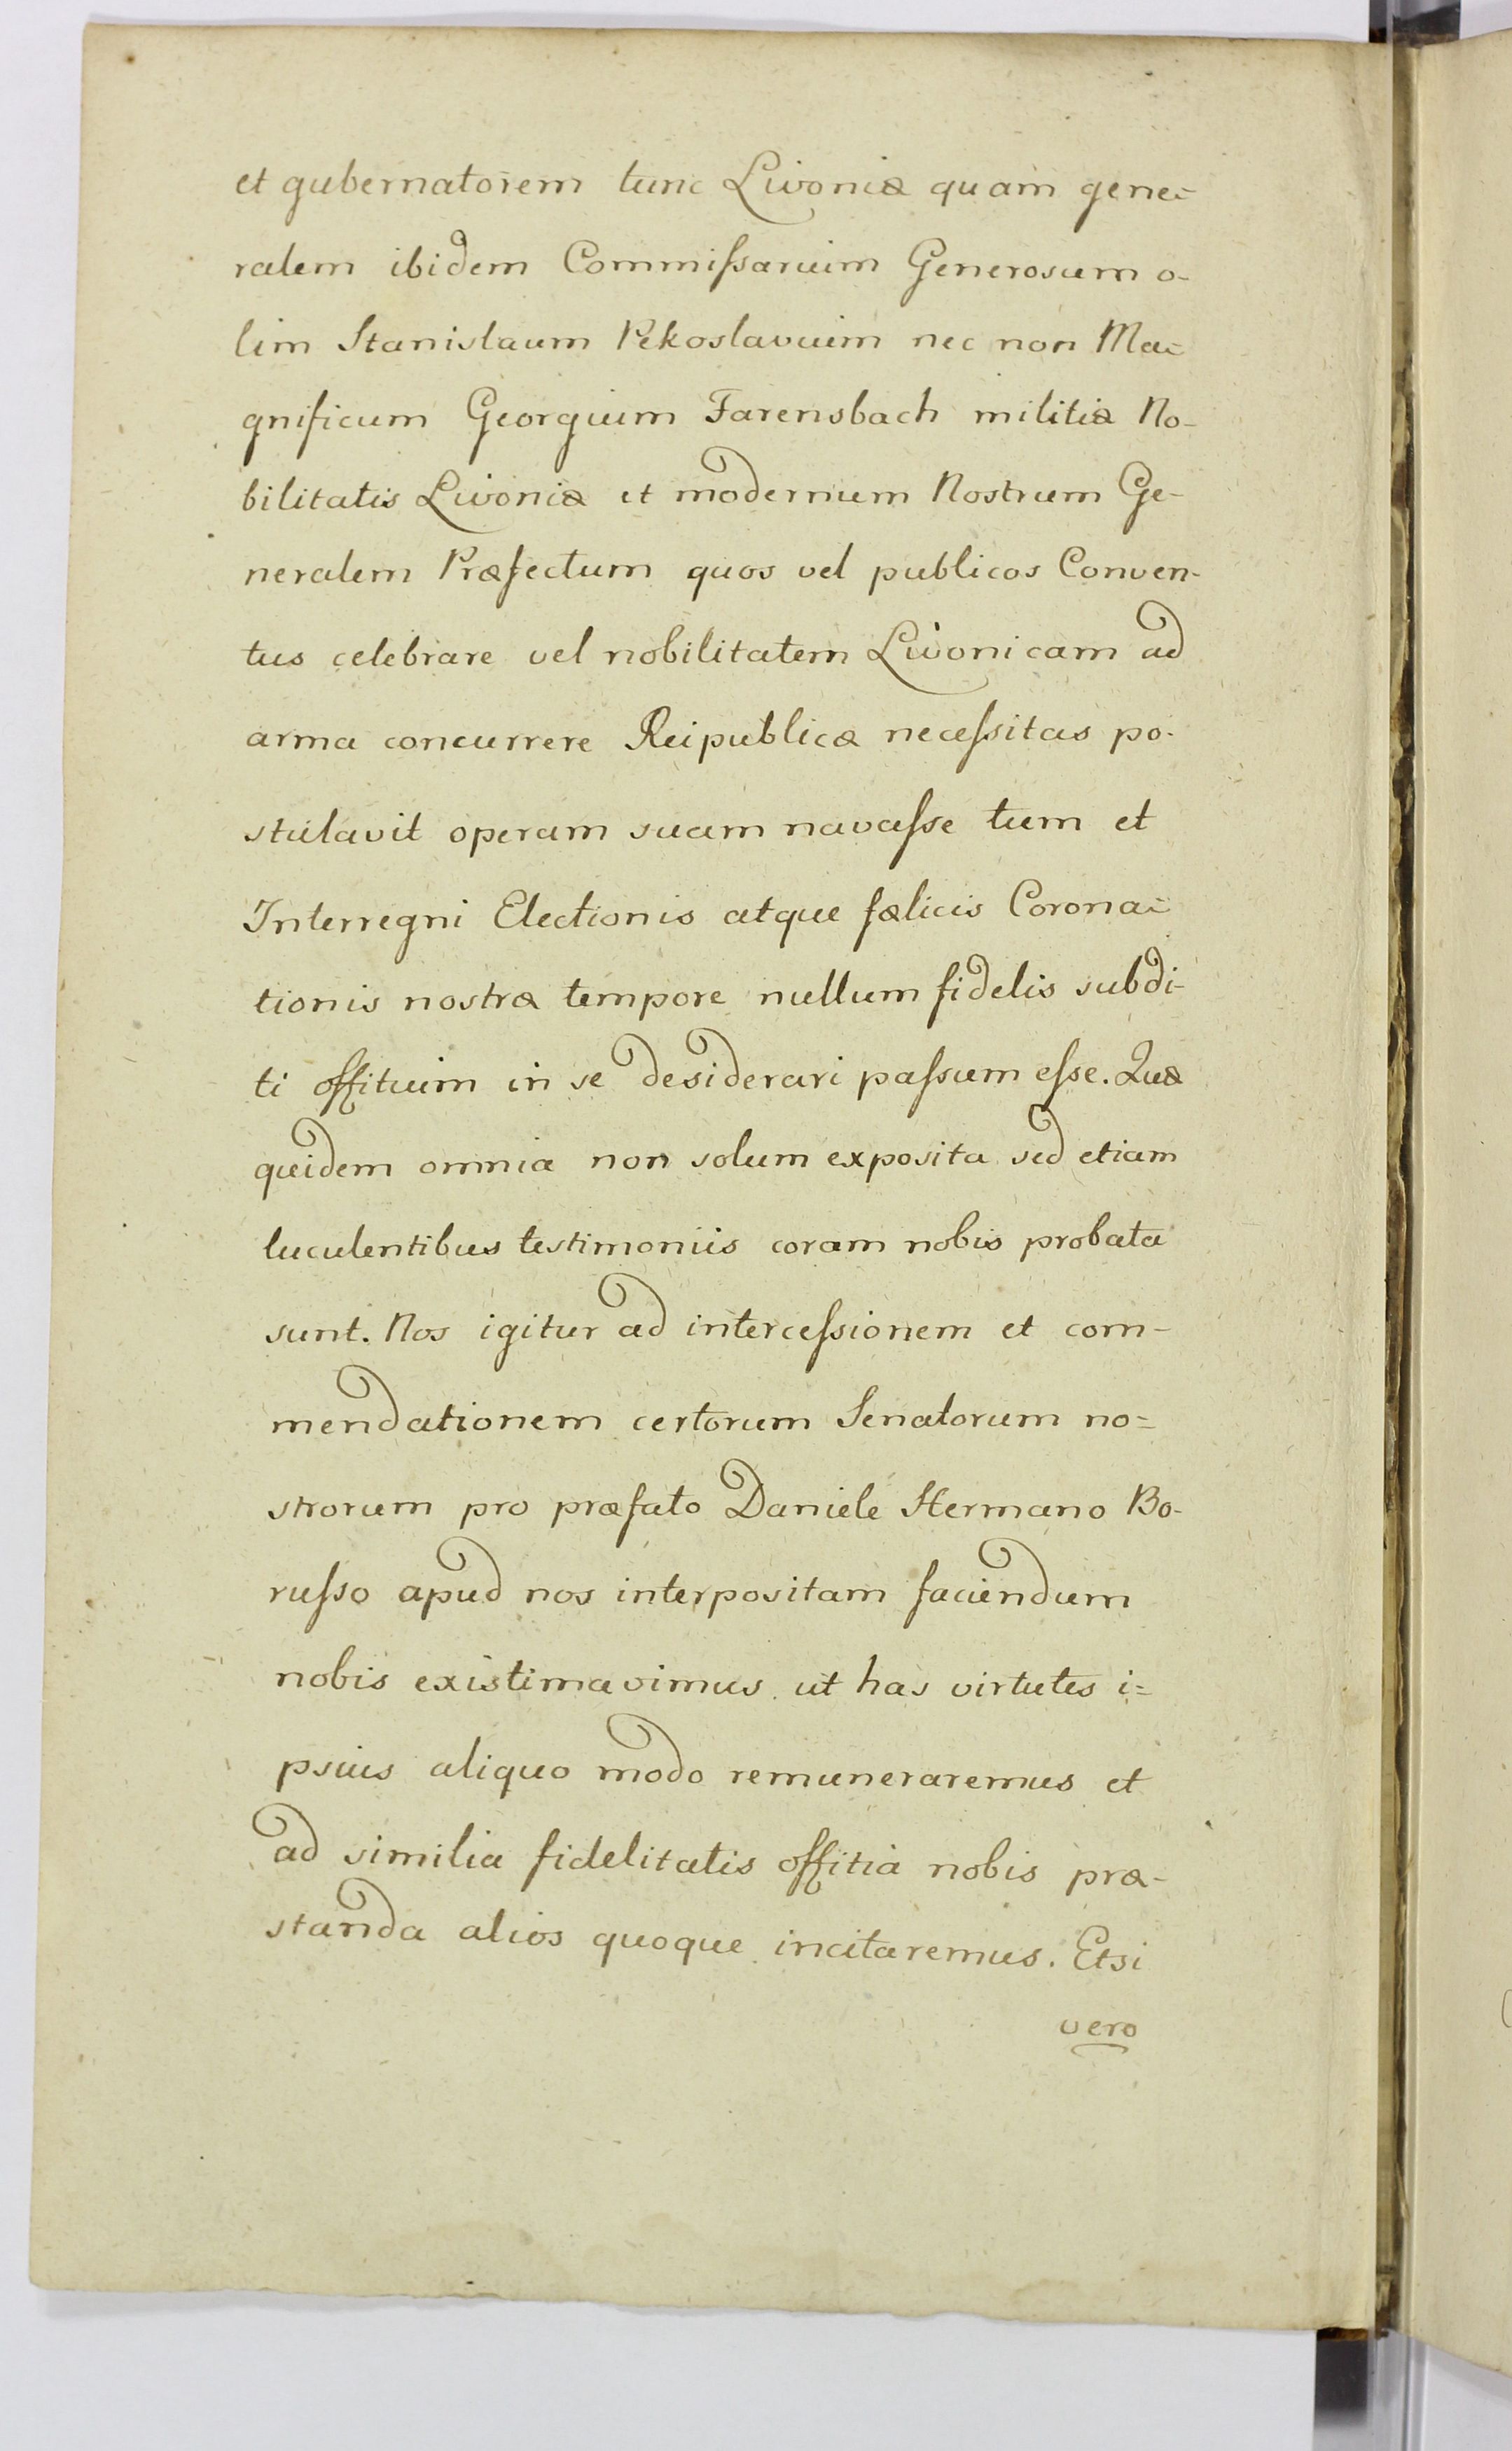 et gubernatorem tunc Livoniæ quam gene=
ralem ibidem Commiſsarium Generosum o-
lim Stanislaum Pekoslavium nec non Ma=
gnificum Georgium Farensbach militiæ No-
bilitatis Livoniæ et modernum Nostrum Ge-
neralem Præfectum quos vel publicos Conven-
tus celebrare vel nobilitatem Livonicam ad
arma concurrere Reipublicæ neceſsitas po-
stulavit operam suam navaſse tum et
Interregni Electionis atque fælicis Corona=
tionis nostræ tempore nullum fidelis subdi-
ti offitium in se desiderari paſsum eſse. Quæ
quidem omnia non solum exposita sed etiam
luculentibus testimoniis coram nobis probata
sunt. Nos igitur ad interceſsionem et com-
mendationem certorum Senatorum no=
strorum pro præfato Daniele Hermano Bo-
ruſso apud nos interpositam faciendum
nobis existimavimus ut has virtutes i=
psius aliquo modo remuneraremus et
ad similia fidelitatis offitia nobis præ-
standa alios quoque incitaremus. Etsi
vero